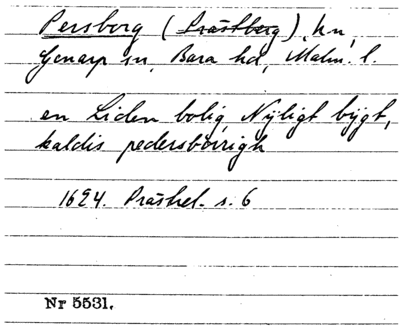 Persborg (Prästberg), hn,
Genarp sn, Bara hd, Malm. l.
en Liden bolig Nyligt bÿgt,
kaldis pedersborrigh
1624. Prästrel. s. 6
Nr 5531.